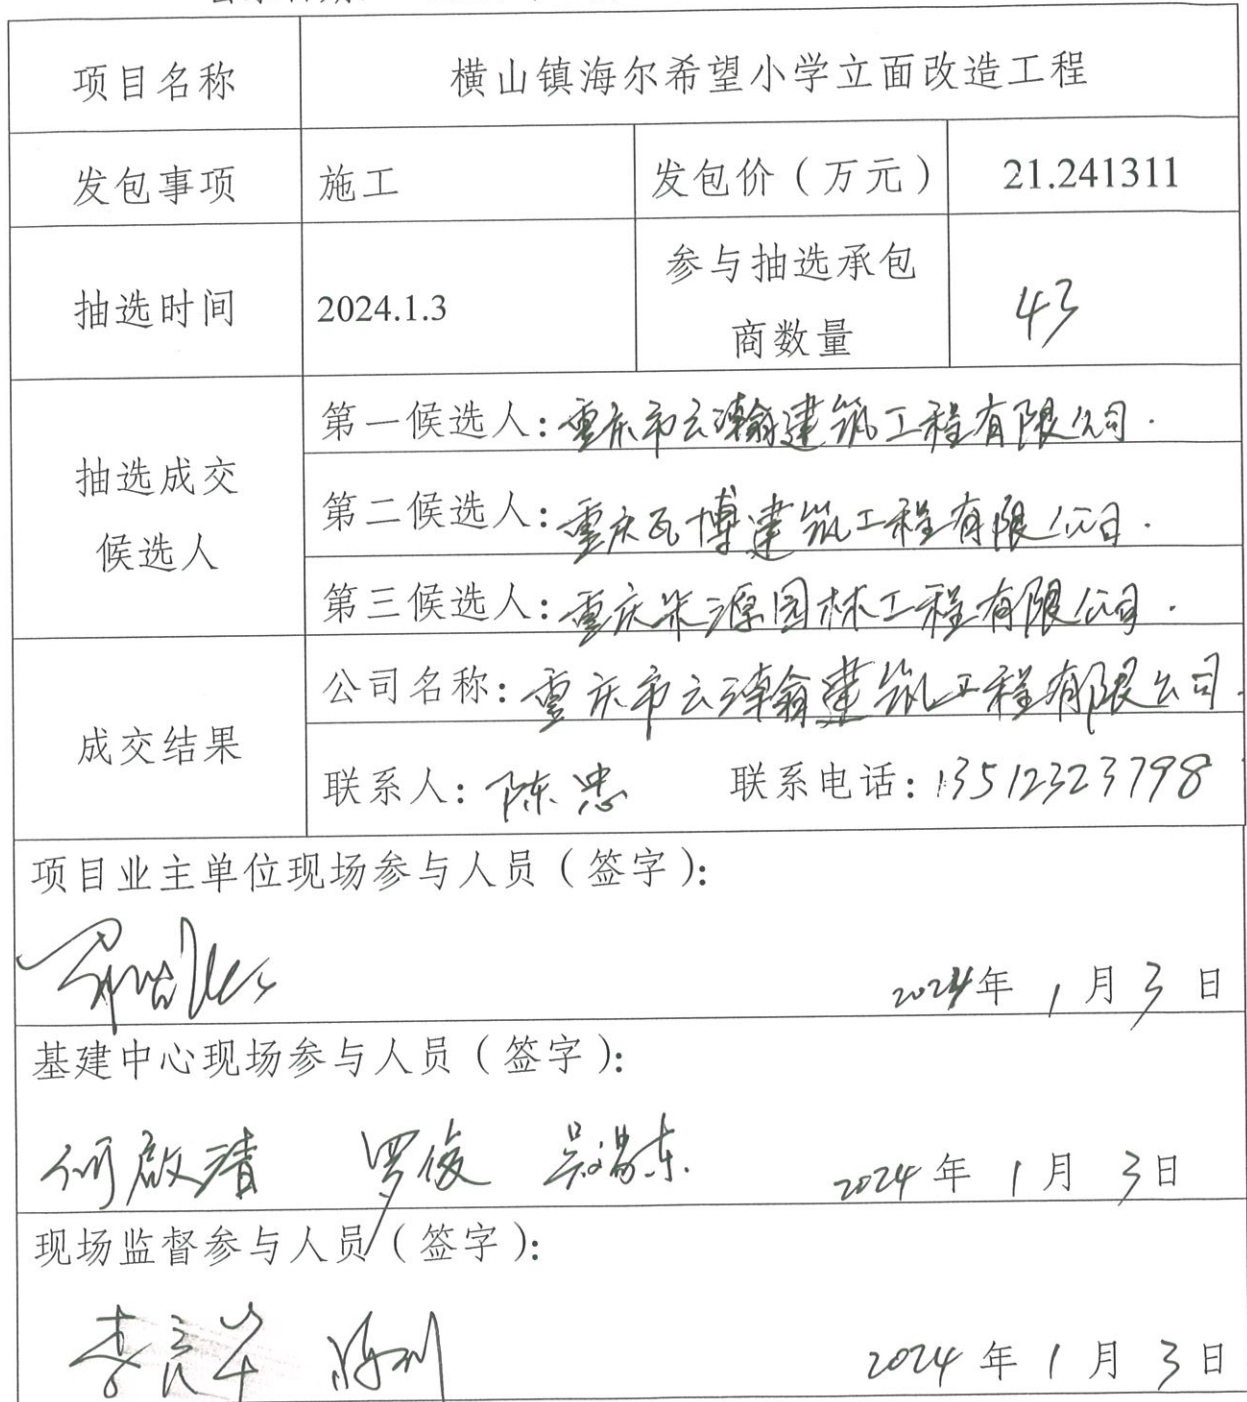 项目名称
横山镇海尔希望小学立面改造工程
发包事项
施工
发包价（万元）
21.241311
抽选时间
2024.1.3
参与抽选承包
商数量
43
抽选成交
候选人
第一候选人：重庆市云瀚建筑工程有限公司.
第二候选人：重庆瓦博建筑工程有限公司.
第三候选人：重庆柒源园林工程有限公司.
成交结果
公司名称：重庆市云瀚建筑工程有限公司.
联系人：陈忠 联系电话：13512323798
项目业主单位现场参与人员（签字）：
2024年 1月3日
基建中心现场参与人员（签字）：
何啟清 罗俊
2024年1月3日
现场监督参与人员（签字）：
2024年1月3日